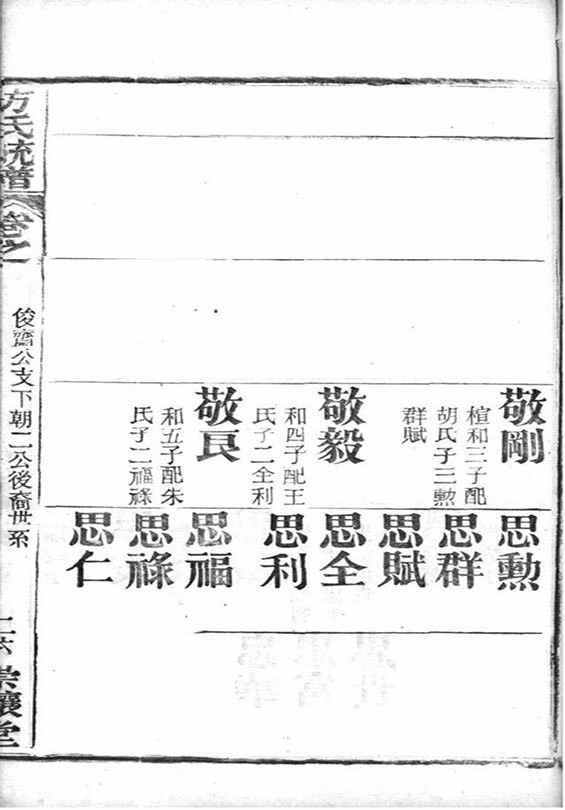 敬剛
楦和三子配
胡氏子三勲
群賦
敬毅
和四子配王
氏子二全利
敬良
和五子配朱
氏子二福祿
思勳
思群
思賦
思全
思利
思福
思祿
思仁
方氏统譜
卷之一
俊齋公支下朝二公後裔世系
二六
崇讓堂